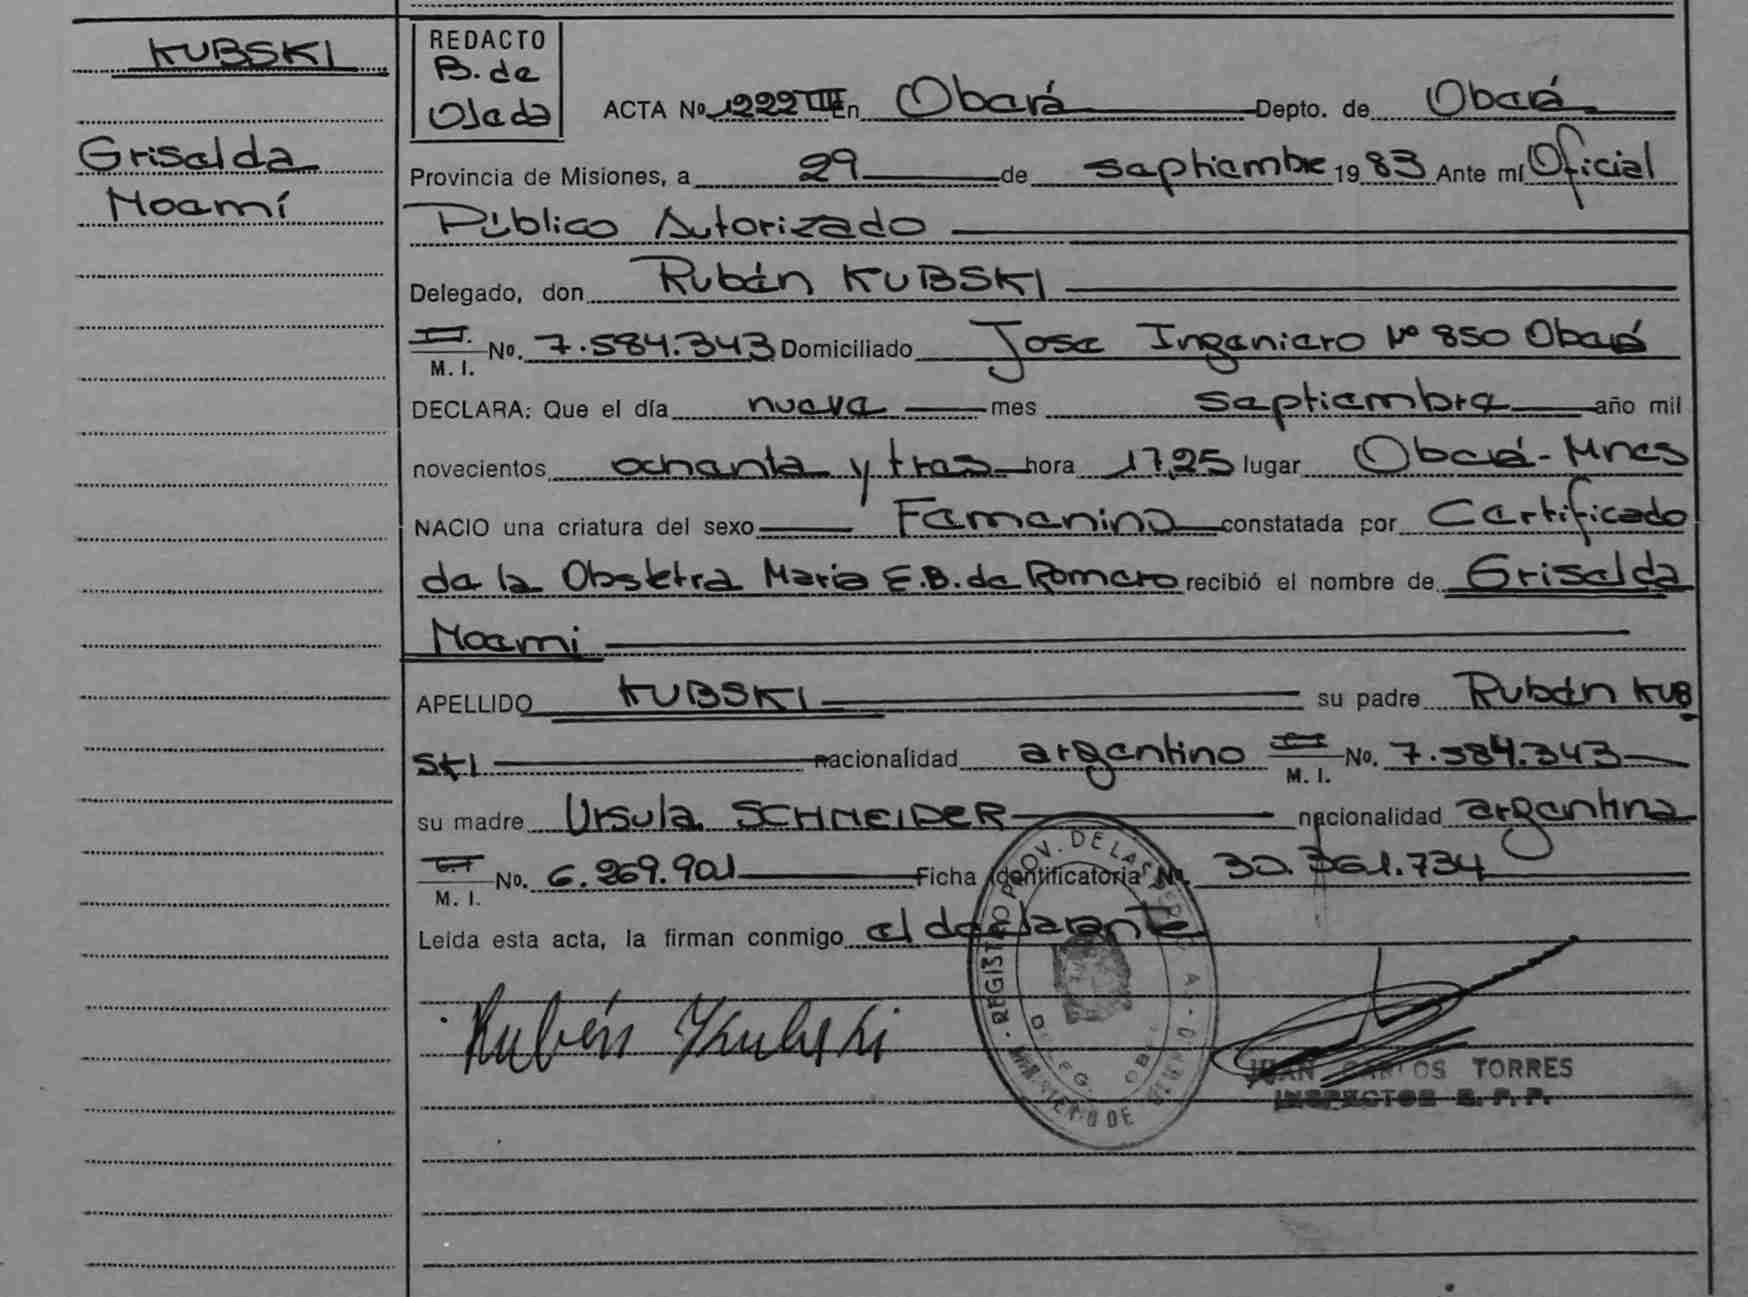 KUBSKI
Griselda
Noemí
REDACTO
B. de
Ojeda
ACTA Nº 1222 III En Oberá Depto. de Oberá
Provincia de Misiones, a 29 de septiembre 1983 Ante mí Oficial
Público Autorizado
Delegado, don Rubén KUBSKI
M. I. No. 7.584.343 Domiciliado Jose Ingeniero Nº 850 Oberá
DECLARA: Que el día nueve mes septiembre año mil
novecientos ochenta y tres hora 17,25 lugar Oberá - Mnes
NACIO una criatura del sexo Femenino constatada por Certificado
de la Obstetra Maria E.B. de Romero recibió el nombre de Griselda
Noemi
APELLIDO KUBSKI su padre Rubén KUB
SKI nacionalidad argentino M. I. No. 7.584.343
su madre Ursula SCHNEIDER nacionalidad argentina
M. I. No. 6.269.901 Ficha Identificatoria No. 30.361.734
Leída esta acta, la firman conmigo el declarante
Rubén Kubski
REGISTRO PROV. DE LAS
DELEG. OB
JUAN CARLOS TORRES
INSPECTOR R. P. P.